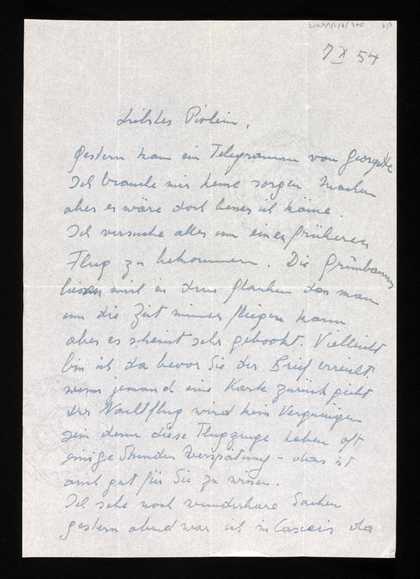 7 X 54
Liebstes Pixlein,
gestern kam ein Telegramm von
Ich brauche mir keine Sorgen machen
aber es wäre doch besser ich käme.
Ich versuche alles um einen früheren
Flug zu bekommen. Die Grünbaums
liessen mich in dem Glauben das man
um die Zeit immer fliegen kann
aber es scheint sehr gebookt. Vielleicht
bin ich da bevor Sie der Brief erreicht
wenn jemand eine Karte zurück giebt
der Nachtflug wird kein Vergnügen
sein denn diese Flugzeuge haben oft
einige Stunden Verspätung - das ist
auch gut für Sie zu wissen.
Ich sehe noch wunderbare Sachen
gestern abend war ich in Cascais da